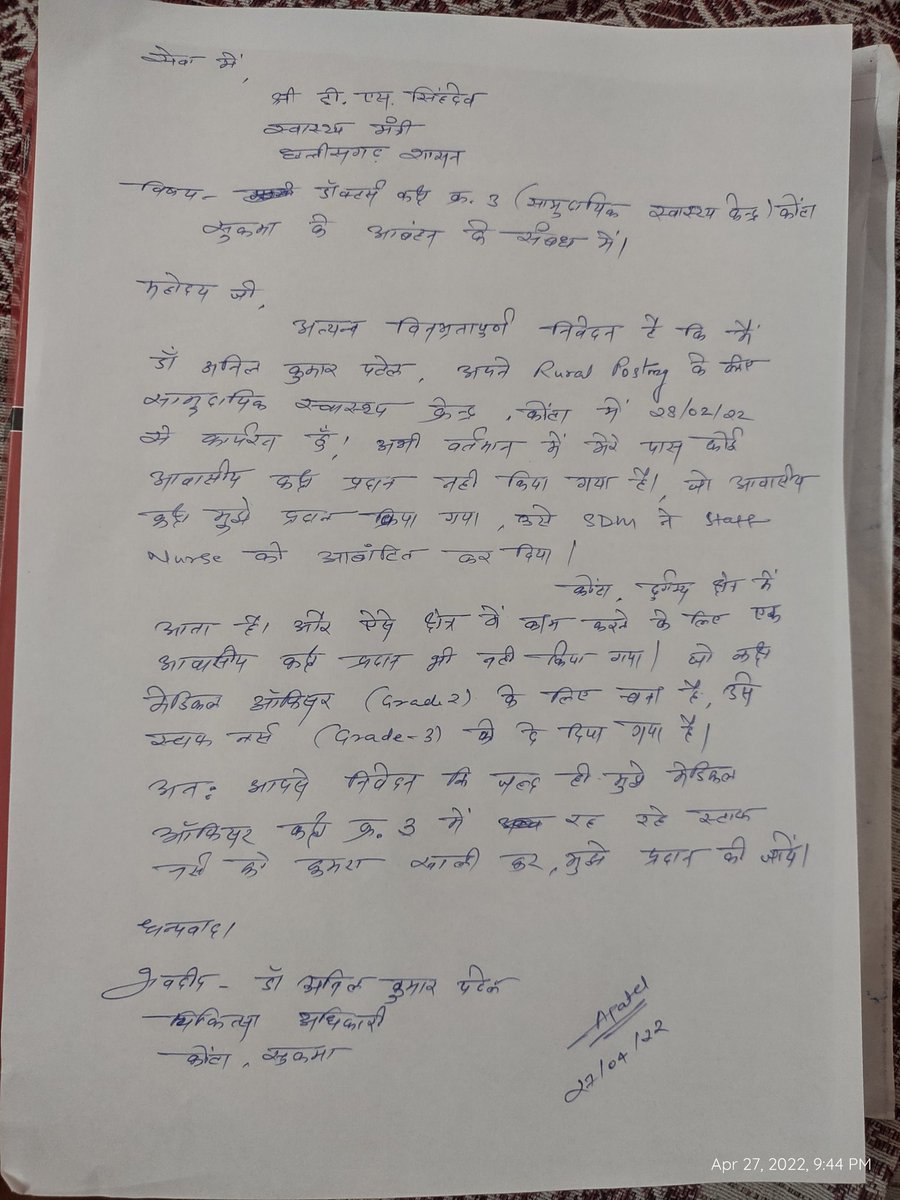 सेवा में,
श्री टी. एस. सिंहदेव
स्वास्थ्य मंत्री
छत्तीसगढ़ शासन
विषय - डॉक्टर्स कक्ष क्र. 3 (सामुदायिक स्वास्थ्य केन्द्र) कोंटा
सुकमा के आबंटन के संबंध में।
महोदय जी,
अत्यन्त विनम्रतापूर्ण निवेदन है कि मैं
डॉ अनिल कुमार पटेल, अपने Rural Posting के लिए
सामुदायिक स्वास्थ्य केन्द्र, कोंटा में 28/02/22
से कार्यरत हूँ। अभी वर्तमान में मेरे पास कोई
आवासीय कक्ष प्रदान नहीं किया गया है। जो आवासीय
कक्ष मुझे प्रदान किया गया, उसे SDM ने Staff
Nurse को आबांटित कर दिया।
कोंटा, दुर्गम्य क्षेत्र में
आता है। और ऐसे क्षेत्र में काम करने के लिए एक
आवासीय कक्ष प्रदान भी नहीं किया गया। जो कक्ष
मेडिकल ऑफिसर (Grade 2) के लिए बना है, उसे
स्टाफ नर्स (Grade-3) को दे दिया गया है।
अतः आपसे निवेदन कि जल्द ही मुझे मेडिकल
ऑफिसर कक्ष क्र. 3 में रह रहे स्टाफ
नर्स को कमरा खाली कर, मुझे प्रदान की जायें।
धन्यवाद।
भवदीय - डॉ अनिल कुमार पटेल
चिकित्सा अधिकारी
कोंटा, सुकमा
APatel
27/04/22
Apr 27, 2022, 9:44 PM